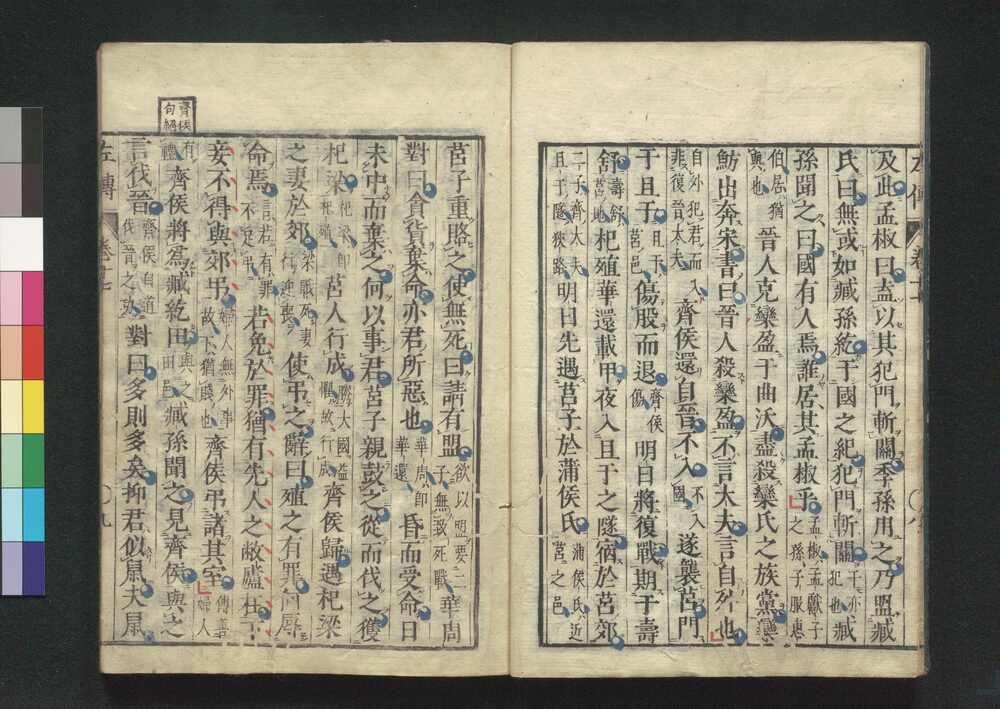 及此孟椒曰盍以其犯門斬關季孫用之乃盟臧
氏曰無或如臧孫紇干國之紀犯門斬關干亦犯也臧
孫聞之曰國有人焉誰居其孟椒乎孟椒孟獻子之孫子服惠
伯居猶與也晉人克欒盈于曲沃盡殺欒氏之族黨欒
魴出奔宋書曰晉人殺欒盈不言大夫言自外也
自外犯君而入非復晉大夫齊侯還自晉不入不入國遂襲莒門
于且于且于莒邑傷股而退齊侯傷明日將復戰期于壽
舒壽舒莒地杞殖華還載甲夜入且于之隧宿於莒郊
二子齊大夫且于隧狹路明日先遇莒子於蒲侯氏蒲侯氏近莒之邑
莒子重賂之使無死曰請有盟欲以盟要二子無致死戰華周
對曰貪貨棄命亦君所惡也華周即華還昏而受命日
未中而棄之何以事君莒子親鼓之從而伐之獲
杞梁杞梁即杞殖莒人行成勝大國益懼故行成齊侯歸遇杞梁
之妻於郊梁戰死妻行迎喪使弔之辭曰殖之有罪何辱
命焉言若有罪不足弔若免於罪猶有先人之敝廬在下
妾不得與郊弔婦人無外事故下猶賤也齊侯弔諸其室傳善婦人
有禮齊侯將為臧紇田與之田邑臧孫聞之見齊侯與之
言伐晉齊侯自道伐晉之功對曰多則多矣抑君似鼠夫鼠
齊侯
句絕
左傳
卷十七
〇九